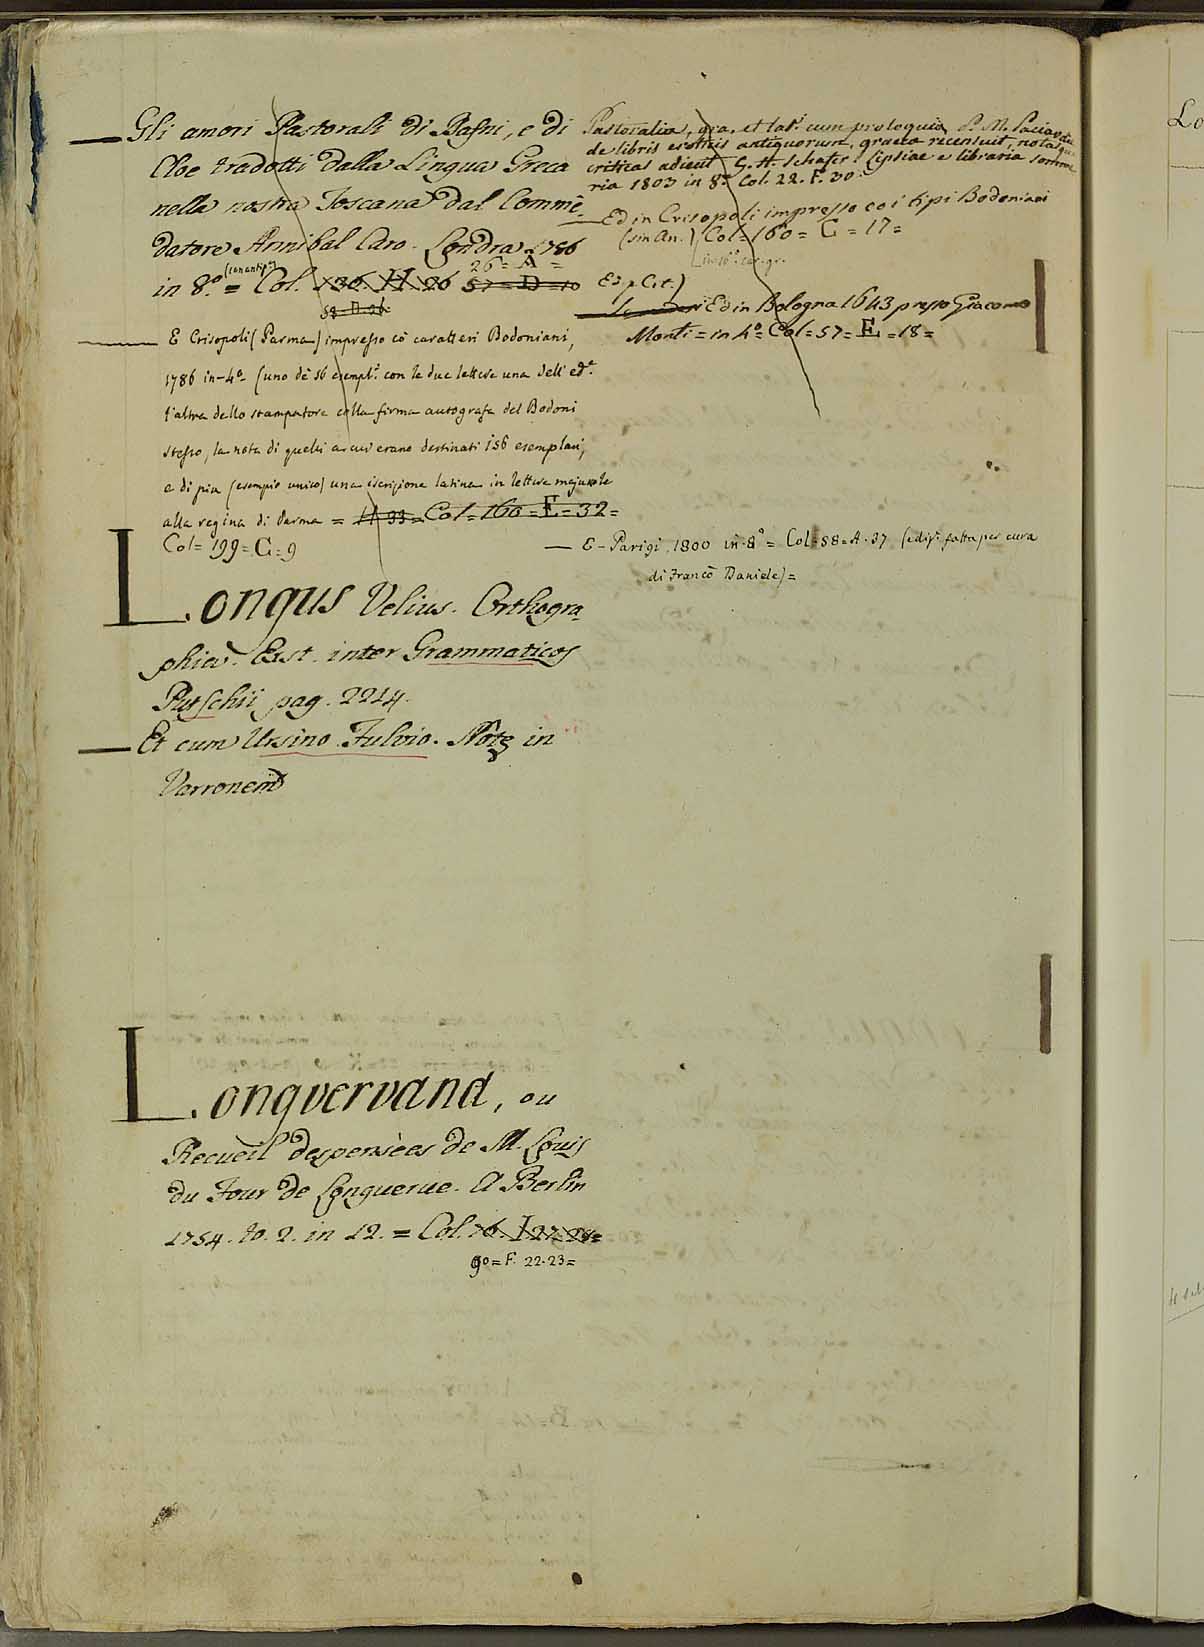 Gli amori Pastorali di Dafni, e di
Cloe tradotti dalla Lingua Greca
nella nostra Toscana dal Commē-
datore Annibal Caro. Londra 1786
in 8.º = Col. 136. H 26 57 = D = 10
26 = A =
58 = D. 26.
E Crisopoli (Parma) impresso cō caratteri Bodoniani,
1786 in-4º (uno de 56 esempl.ⁱ con le due lettere una dell'ed.ᵉ
l'altra dello stampatore colla firma autografa del Bodoni
stesso, la nota di quelli a cui erano destinati i 56 esemplari,
e di piu (esempio unico) una iscrizione latina in lettere majuscole
alla regina di Parma = Col = 160 = E = 32 =
Col = 199 = G = 9
Longus Velius. Orthogra-
phia. Exst. inter Grammaticos
Putschii pag. 2214.
Et cum Ursino Fulvio. Notę in
Varronem
Longuervana, ou
Recueil des pensèes de M. Louis
du Four de Longuerue. A Berlin
1754. to. 2. in 12. = Col. 76. I 27. 28 =
90 = F. 22-23 =
Pastoralia, gra. et lat. cum proloquio P. M. Paciaudii
de libris eroticis antiquorum, graeca recensuit, notasque
criticas adiecit G. H. Schafer. Lipsiae e libraria Somme-
ria 1803 in 8º Col. 22. F. 30.
Ed in Crisopoli impresso co i tipi Bodoniani
(sin an.) Col = 160 = G = 17 =
Ed in Bologna 1643 presso Giacomo
Monti = in 4º = Col = 57 = E = 18 =
E - Parigi 1800 in-8º = Col = 58 = A. 37 (ediz. fatta per cura
di Francō Daniele) =